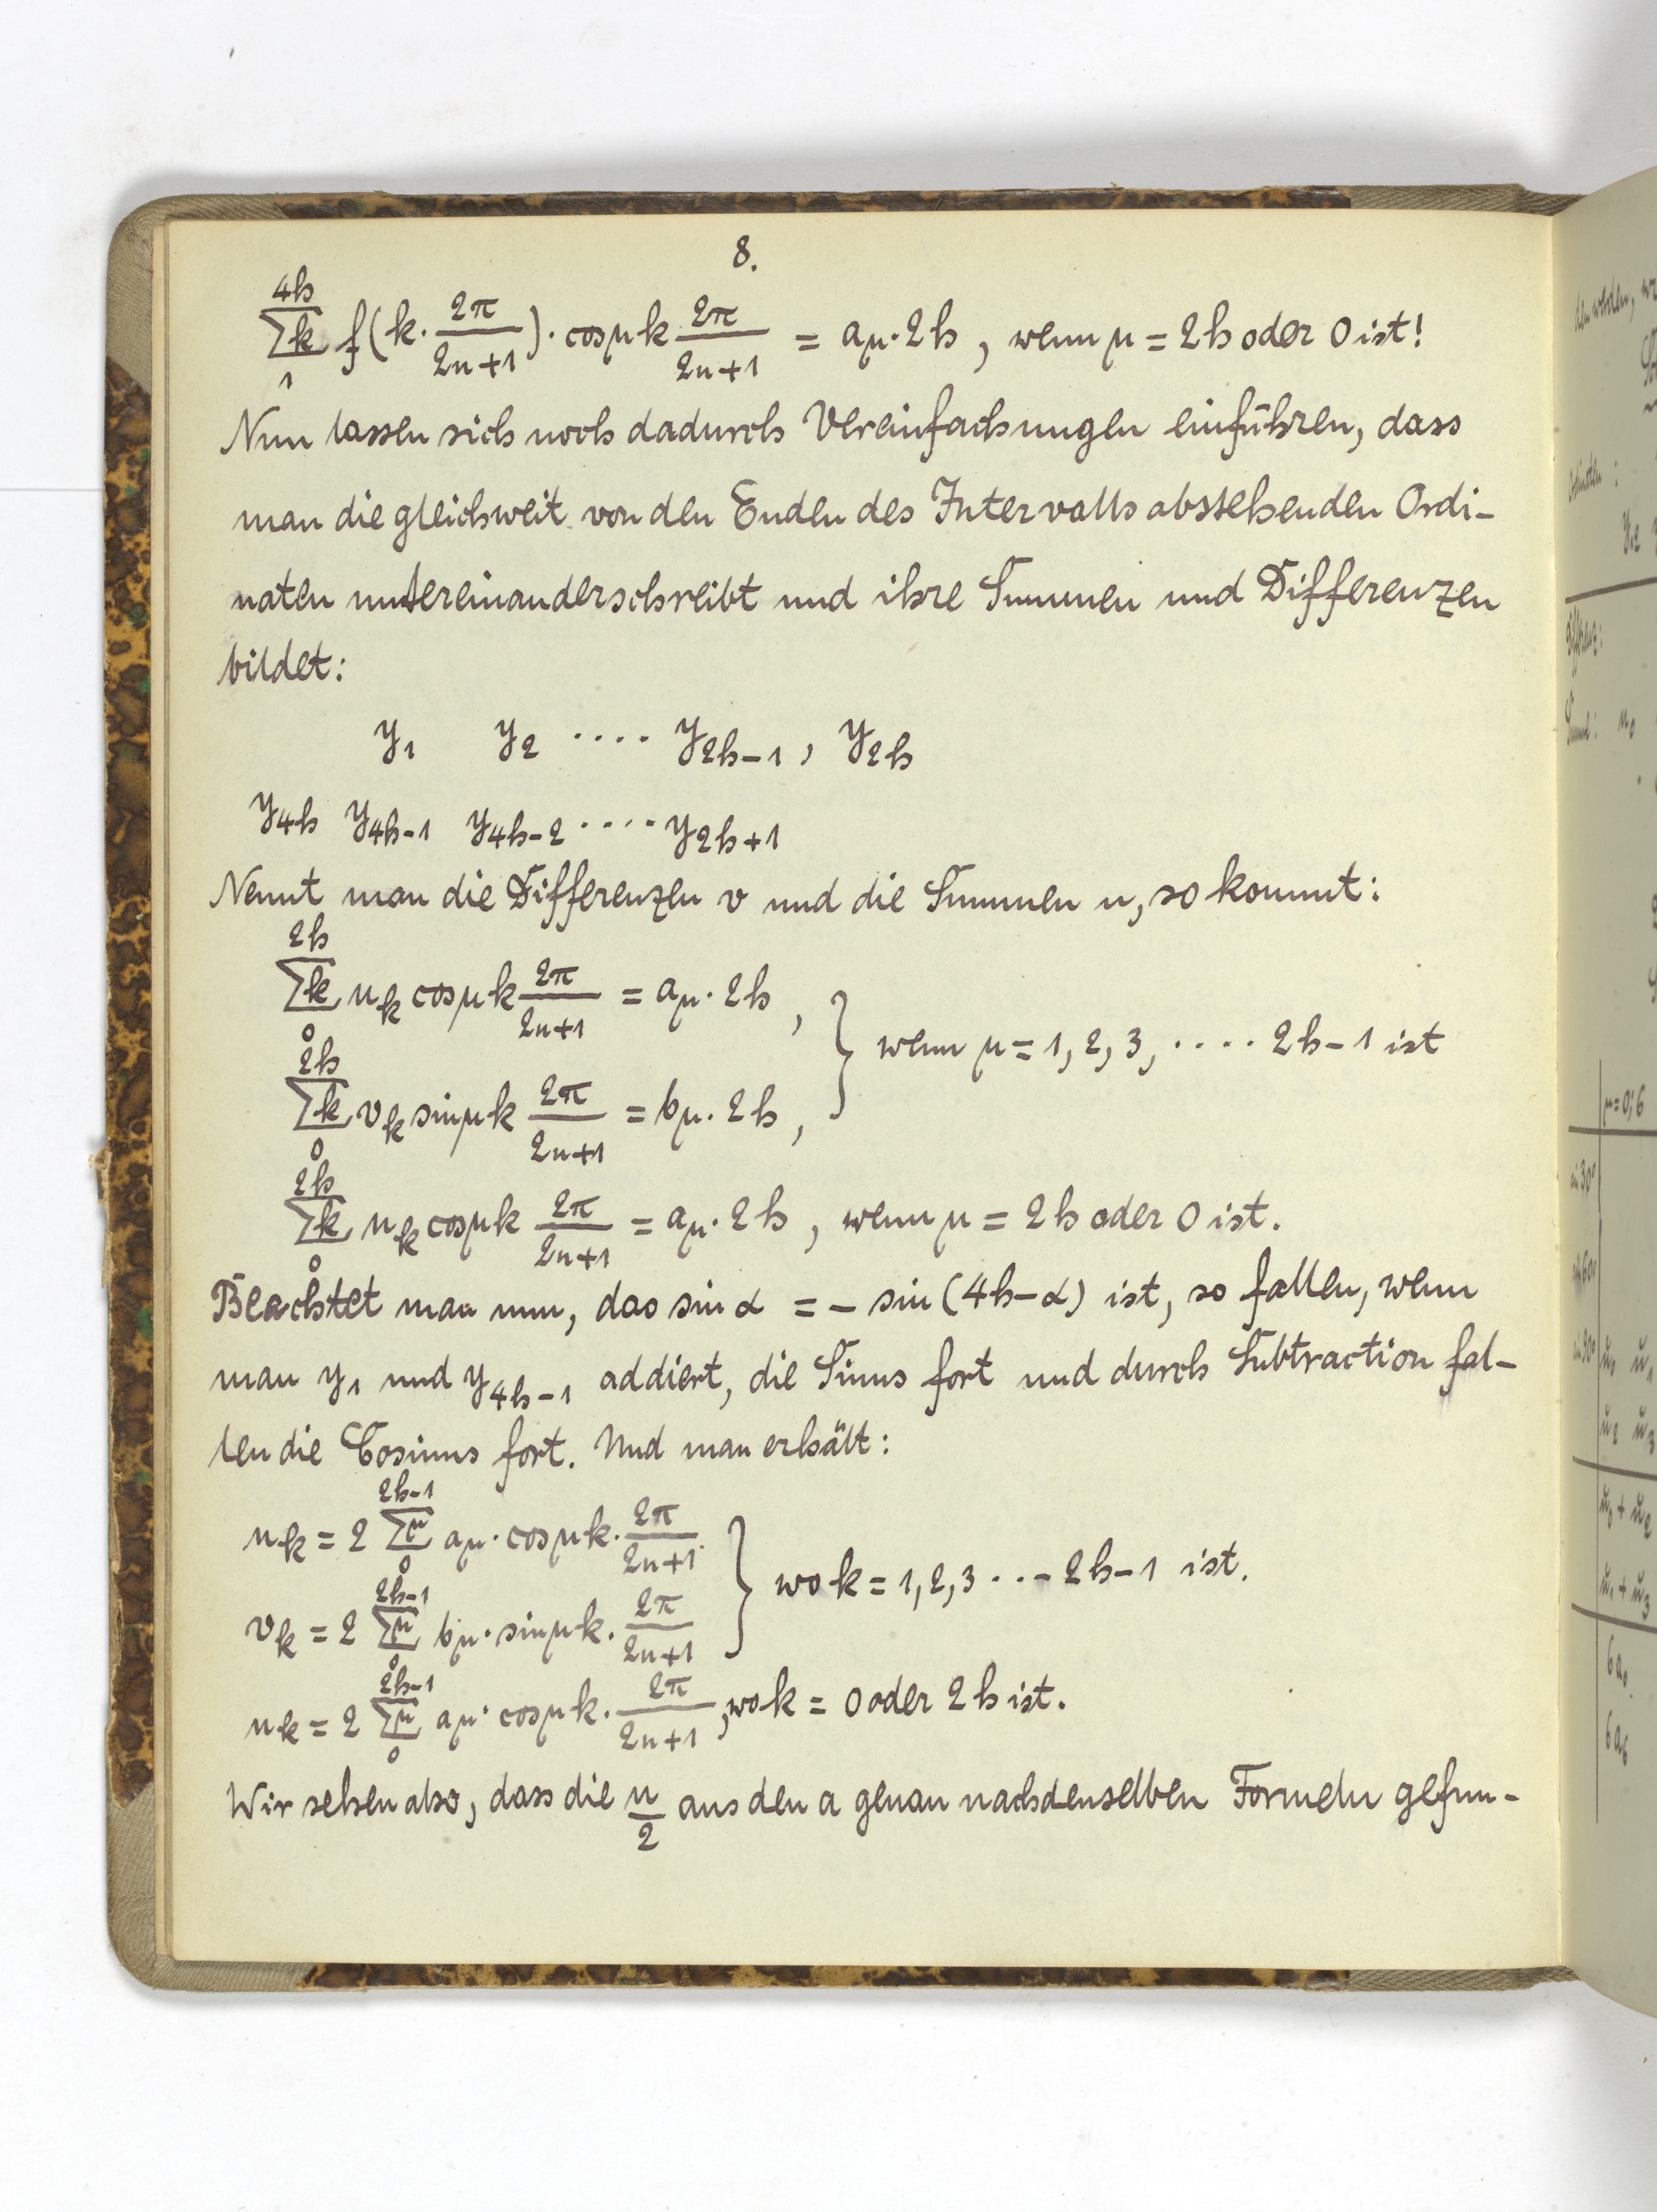 8.
4h
∑k f(k · 2π/2n+1) · cos μk 2π/2n+1 = aμ · 2h, wenn μ = 2h oder 0 ist!
1
Nun lassen sich noch dadurch Vereinfachungen einführen, dass
man die gleichweit von den Enden des Intervalls abstehenden Ordi-
naten untereinanderschreibt und ihre Summen und Differenzen
bildet:
y1 y2 .... y2h-1, y2h
y4h y4h-1 y4h-2 .... y2h+1
Nennt man die Differenzen v und die Summen u, so kommt:
2h
∑k uk cos μk 2π/2n+1 = aμ · 2h,
0
2h
∑k vk sin μk 2π/2n+1 = bμ · 2h, } wenn μ = 1, 2, 3, .... 2h-1 ist
0
2h
∑k uk cos μk 2π/2n+1 = aμ · 2h, wenn μ = 2h oder 0 ist.
0
Beachtet man nun, das sin α = - sin (4h-α) ist, so fallen, wenn
man y1 und y4h-1 addiert, die Sinus fort und durch Subtraction fal-
len die Cosinus fort. Und man erhält:
2h-1
uk = 2 ∑μ aμ · cos μk · 2π/2n+1
0
2h-1
vk = 2 ∑μ bμ · sin μk · 2π/2n+1 } wo k = 1, 2, 3 ... 2h-1 ist.
0
2h-1
uk = 2 ∑μ aμ · cos μk · 2π/2n+1, wo k = 0 oder 2h ist.
0
Wir sehen also, dass die u/2 aus den a genau nach denselben Formeln gefun-
den werden,
y2
Differenz:
u0
μ=0; 6
sin 30°
sin 90° u0 u1
u2 u3
u0 + u2
u1 + u3
6a0
6a6